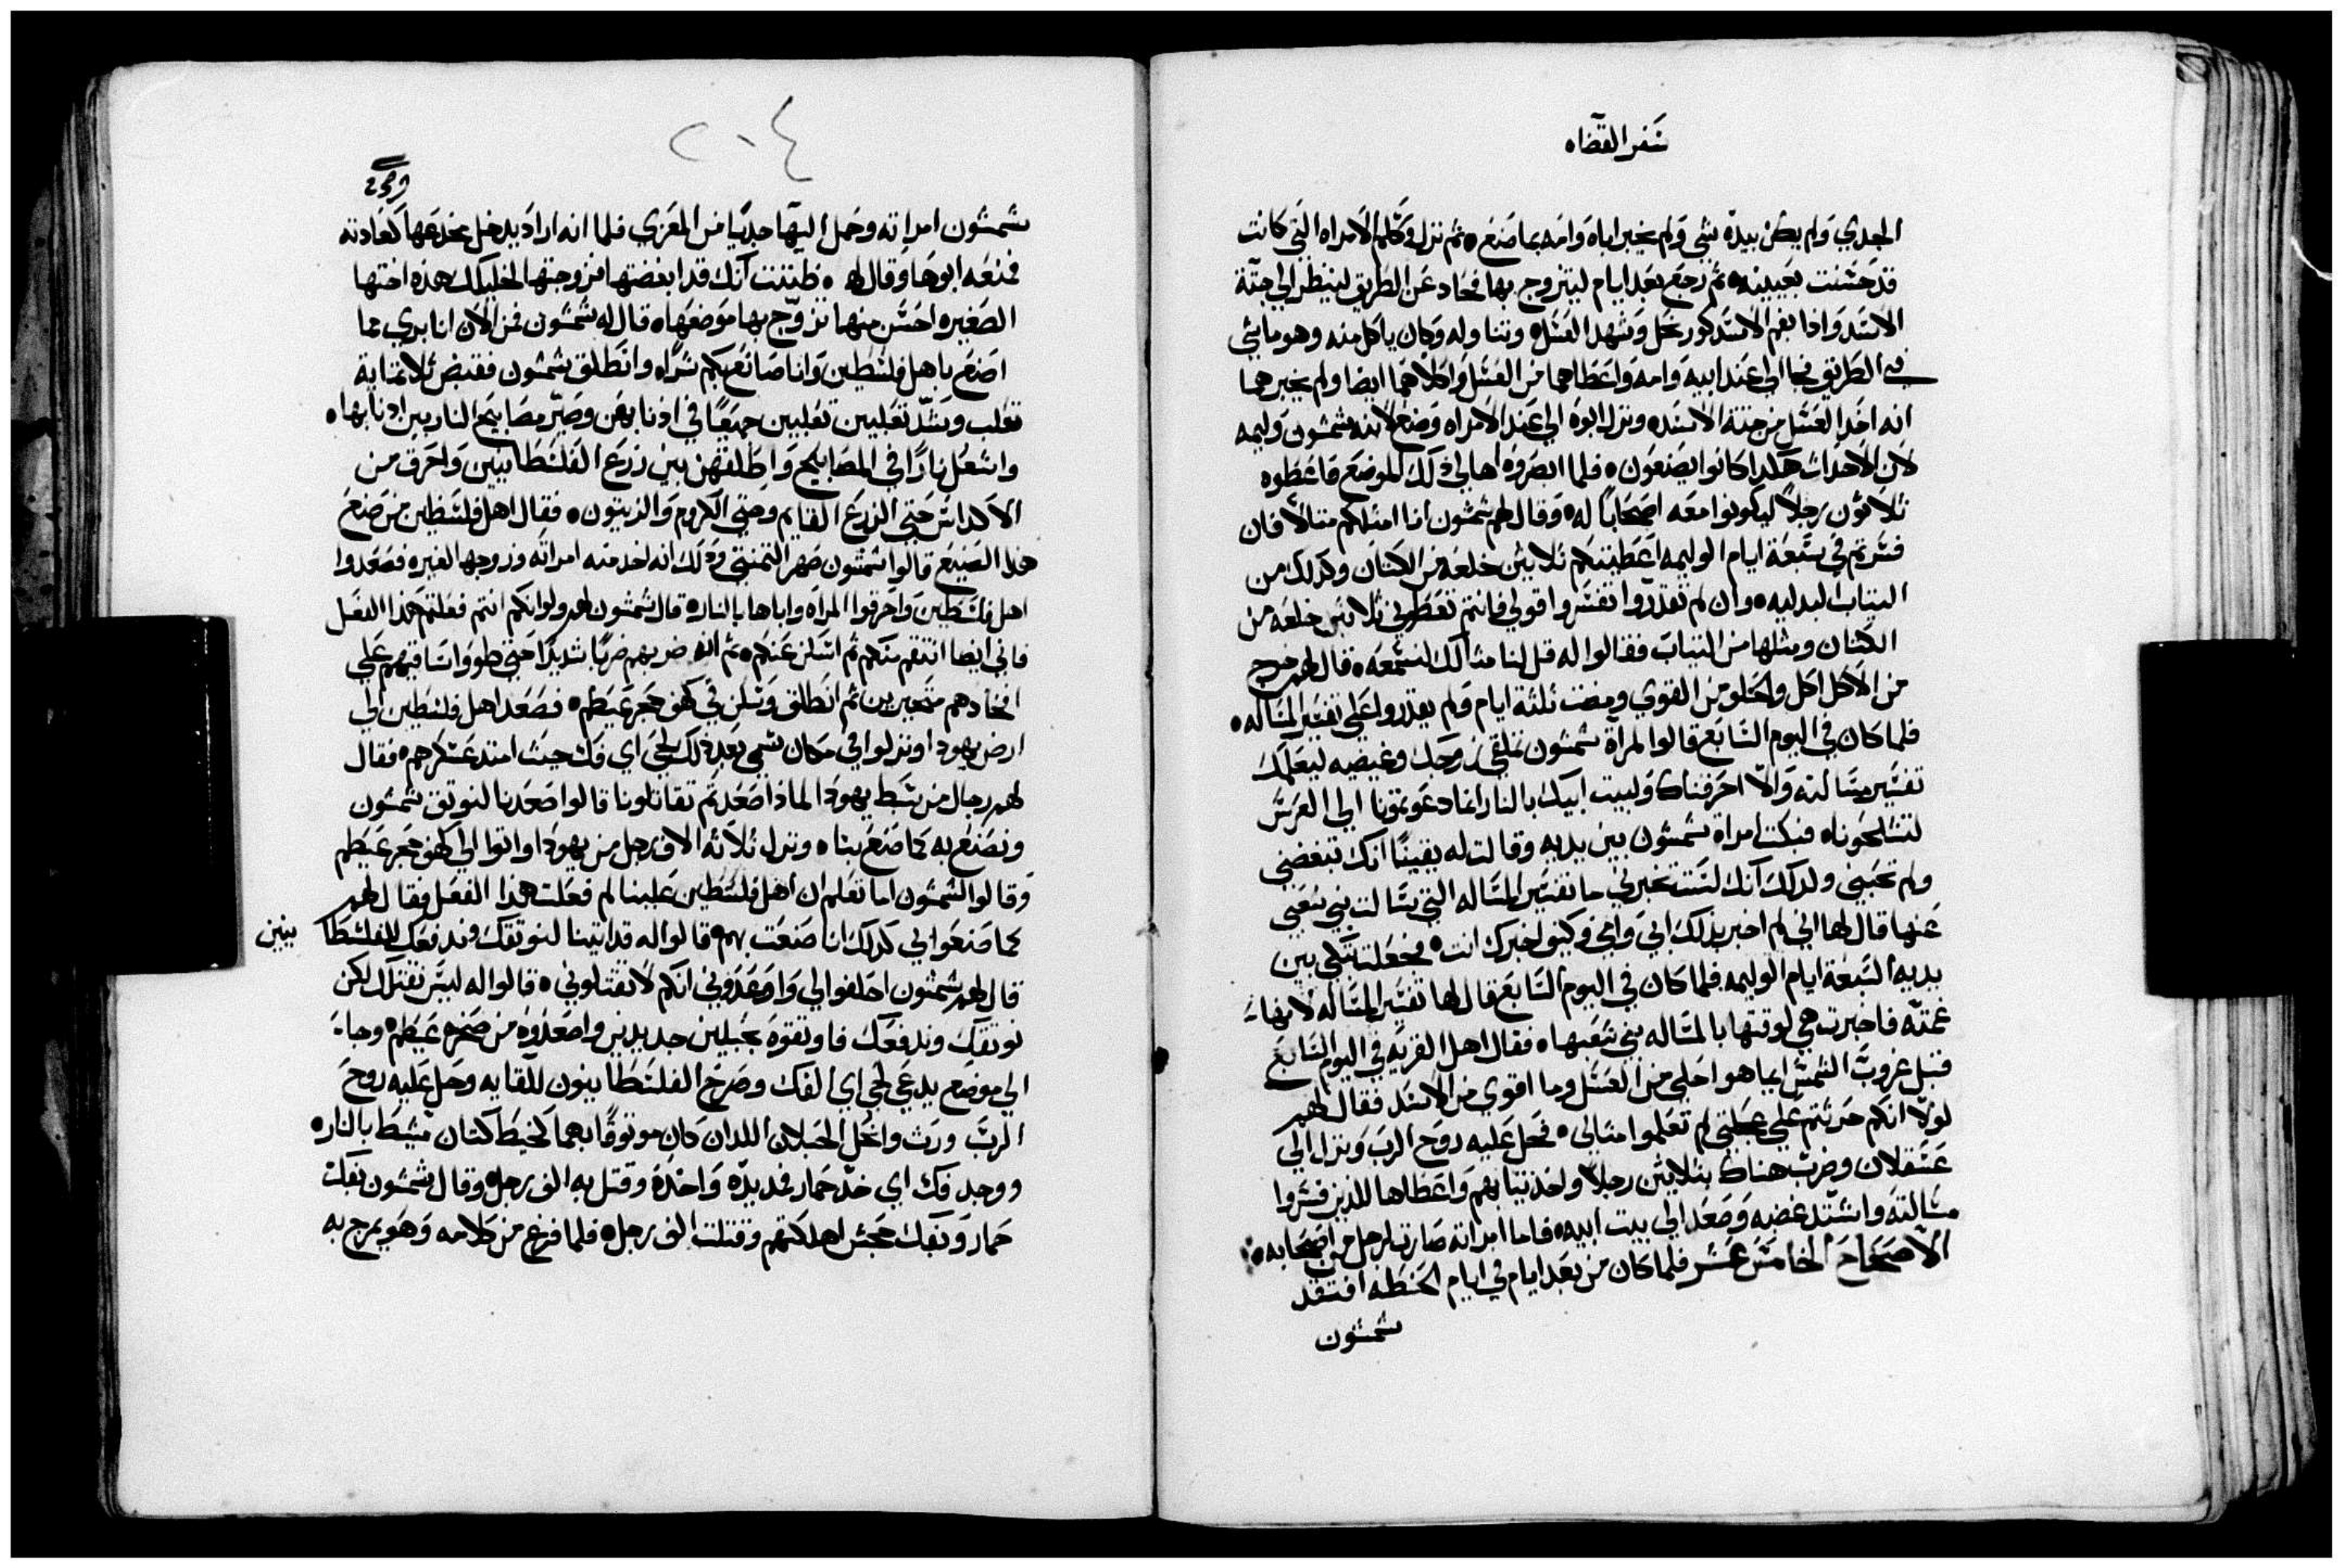 سفر القضاه
الجدي ولم يكن بيده شي ولم يخبر اباه وامه بما صنع ثم نزل وكلم الامراه التي كانت
قد حسنت بعينيه ثم رجع بعد ايام ليتزوج بها فحاد عن الطريق لينظر الي جتة
الاسد واذا بفم الاسد كور نحل وشهد العسل وتناوله وكان ياكل منه وهو ماشي
في الطريق فجا الي عند ابيه وامه واعطاهما من العسل واكلا هما ايضا ولم يخبرهما
انه اخد العسل من جتة الاسد ونزل ابوه الي عند الامراه وصنع لابنه شمشون وليمه
لان الاحداث هكدا كانوا يصنعون فلما ابصروه اهالي دلك الموضع فاعطوه
ثلاثون رجلاً ليكونوا معه اصحاباً له وقال لهم شمشون انا امثلكم مثالاً فان
فسرتم في سبعة ايام الوليمه اعطيتكم ثلاثين خلعه من الكتان وكدلك من
الثياب البدليه وان لم تقدروا تفسروا قولي فانتم تعطوني ثلاثين خلعه من
الكتان ومثلها من الثياب فقالوا له قل لنا مثالك لنسمعه قال لهم خرج
من الاكل اكل والحلو من القوي ومضت ثلثة ايام ولم يقدروا علي تفسير المساله
فلما كان في اليوم السابع قالوا لمراة شمشون تملقي زوجك وغيضيه ليعلمك
تفسير مسالته والا احرقناك ولبيت ابيك بالنار انما دعوتمونا الي العرس
لتشلحونا فبكت امراة شمشون بين يديه وقالت له يقيناً انك تبغضني
ولم تحبني ولدلك انك لست تخبرني ما تفسير المساله التي سالت بني شعبي
عنها قال لها اني لم اخبر بدلك ابي وامي وكيف اخبرك انت فجعلت تبكي بين
يديه السبعة ايام الوليمه فلما كان في اليوم السابع قال لها تفسير المساله لانها
غمته فاخبرت هي لوقتها بالمساله بني شعبها فقال اهل القريه في اليوم السابع
قبل غروب الشمس ايما هو احلي من العسل وما اقوي من الاسد فقال لهم
لولا انكم حرثتم علي عجلتي لم تعلموا مثالي فحل عليه روح الرب ونزل الي
عسقلان وضرب هناك بثلاثين رجلاً واخد ثيابهم واعطاها للدين فسروا
مسالته واشتد غضبه وصعد الي بيت ابيه فاما امراته صارت لرجل من اصحابه
الاصحاح الخامس عشر فلما كان من بعد ايام في ايام الحنطه افتقد
شمشون
٢٠٤
شمشون امراته وحمل اليها جدياً من المعزي فلما انه اراد يدخل مخدعها كعادته
فمنعه ابوها وقال له ظننت انك قد ابغضتها فزوجتها لخليلك هده اختها
الصغيره احسن منها تزوج بها موضعها قال له شمشون فمن الان انا بري مما
اصنع باهل فلسطين وانا صانع بكم شراً وانطلق شمشون فقبض ثلاثماية
تعلب وشد تعلبين تعلبين جميعاً في ادنابهن وصير مصابيح النار بين ادنابها
واشعل ناراً في المصابيح واطلقهن بين زرع الفلسطانيين واحرق من
الاكداس حتي الزرع القايم وحتي الكروم والزيتون فقال اهل فلسطين من صنع
هدا الصنيع قالوا شمشون صهر التمنتي ودلك انه اخد منه امراته وزوجها لغيره فصعدوا
اهل فلسطين واحرقوا المراه واباها بالنار قال شمشون لهم ولو انكم انتم فعلتم هدا الفعل
فاني ايضا انتقم منكم ثم اسكن عنكم ثم انه ضربهم ضرباً شديداً حتي طووا ساقيهم علي
افخادهم متحيرين ثم انطلق وسكن في كهف حجر عيطم فصعد اهل فلسطين الي
ارض يهودا ونزلوا في مكان سمي بعد دلك لحي اي فك حيث امتد عسكرهم فقال
لهم رجال من سبط يهودا لمادا صعدتم تقاتلونا قالوا صعدنا لنوثق شمشون
ونصنع به كما صنع بنا ونزل ثلاثه الاف رجل من يهودا واتوا الي كهف حجر عيطم
وقالوا لشمشون اما تعلم ان اهل فلسطين علينا لم فعلت هدا الفعل فقال لهم
كما صنعوا لي كدلك انا صنعت بهم قالوا له قد اتينا لنوثقك وندفعك للفلسطا نيين
قال لهم شمشون احلفوا لي واصعدوني انكم لا تقتلوني قالوا له ليس نقتلك لكن
نوثقك وندفعك فاوثقوه بحبلين جديدين واصعدوه من صخره عيطم وجا
الي موضع يدعي لحي اي الفك وصرخ الفلسطانيون للقايه وحل عليه روح
الرب ورث وانحل الحبلان اللدان كان موثوقاً بهما كخيط كتان مشيط بالنار
ووجد فك اي خد حمار فمد يده واخده وقتل به الف رجل وقال شمشون بفك
حمار وبفك جحش اهلكتهم وقتلت الف رجل فلما فرغ من كلامه وهو يمرح به